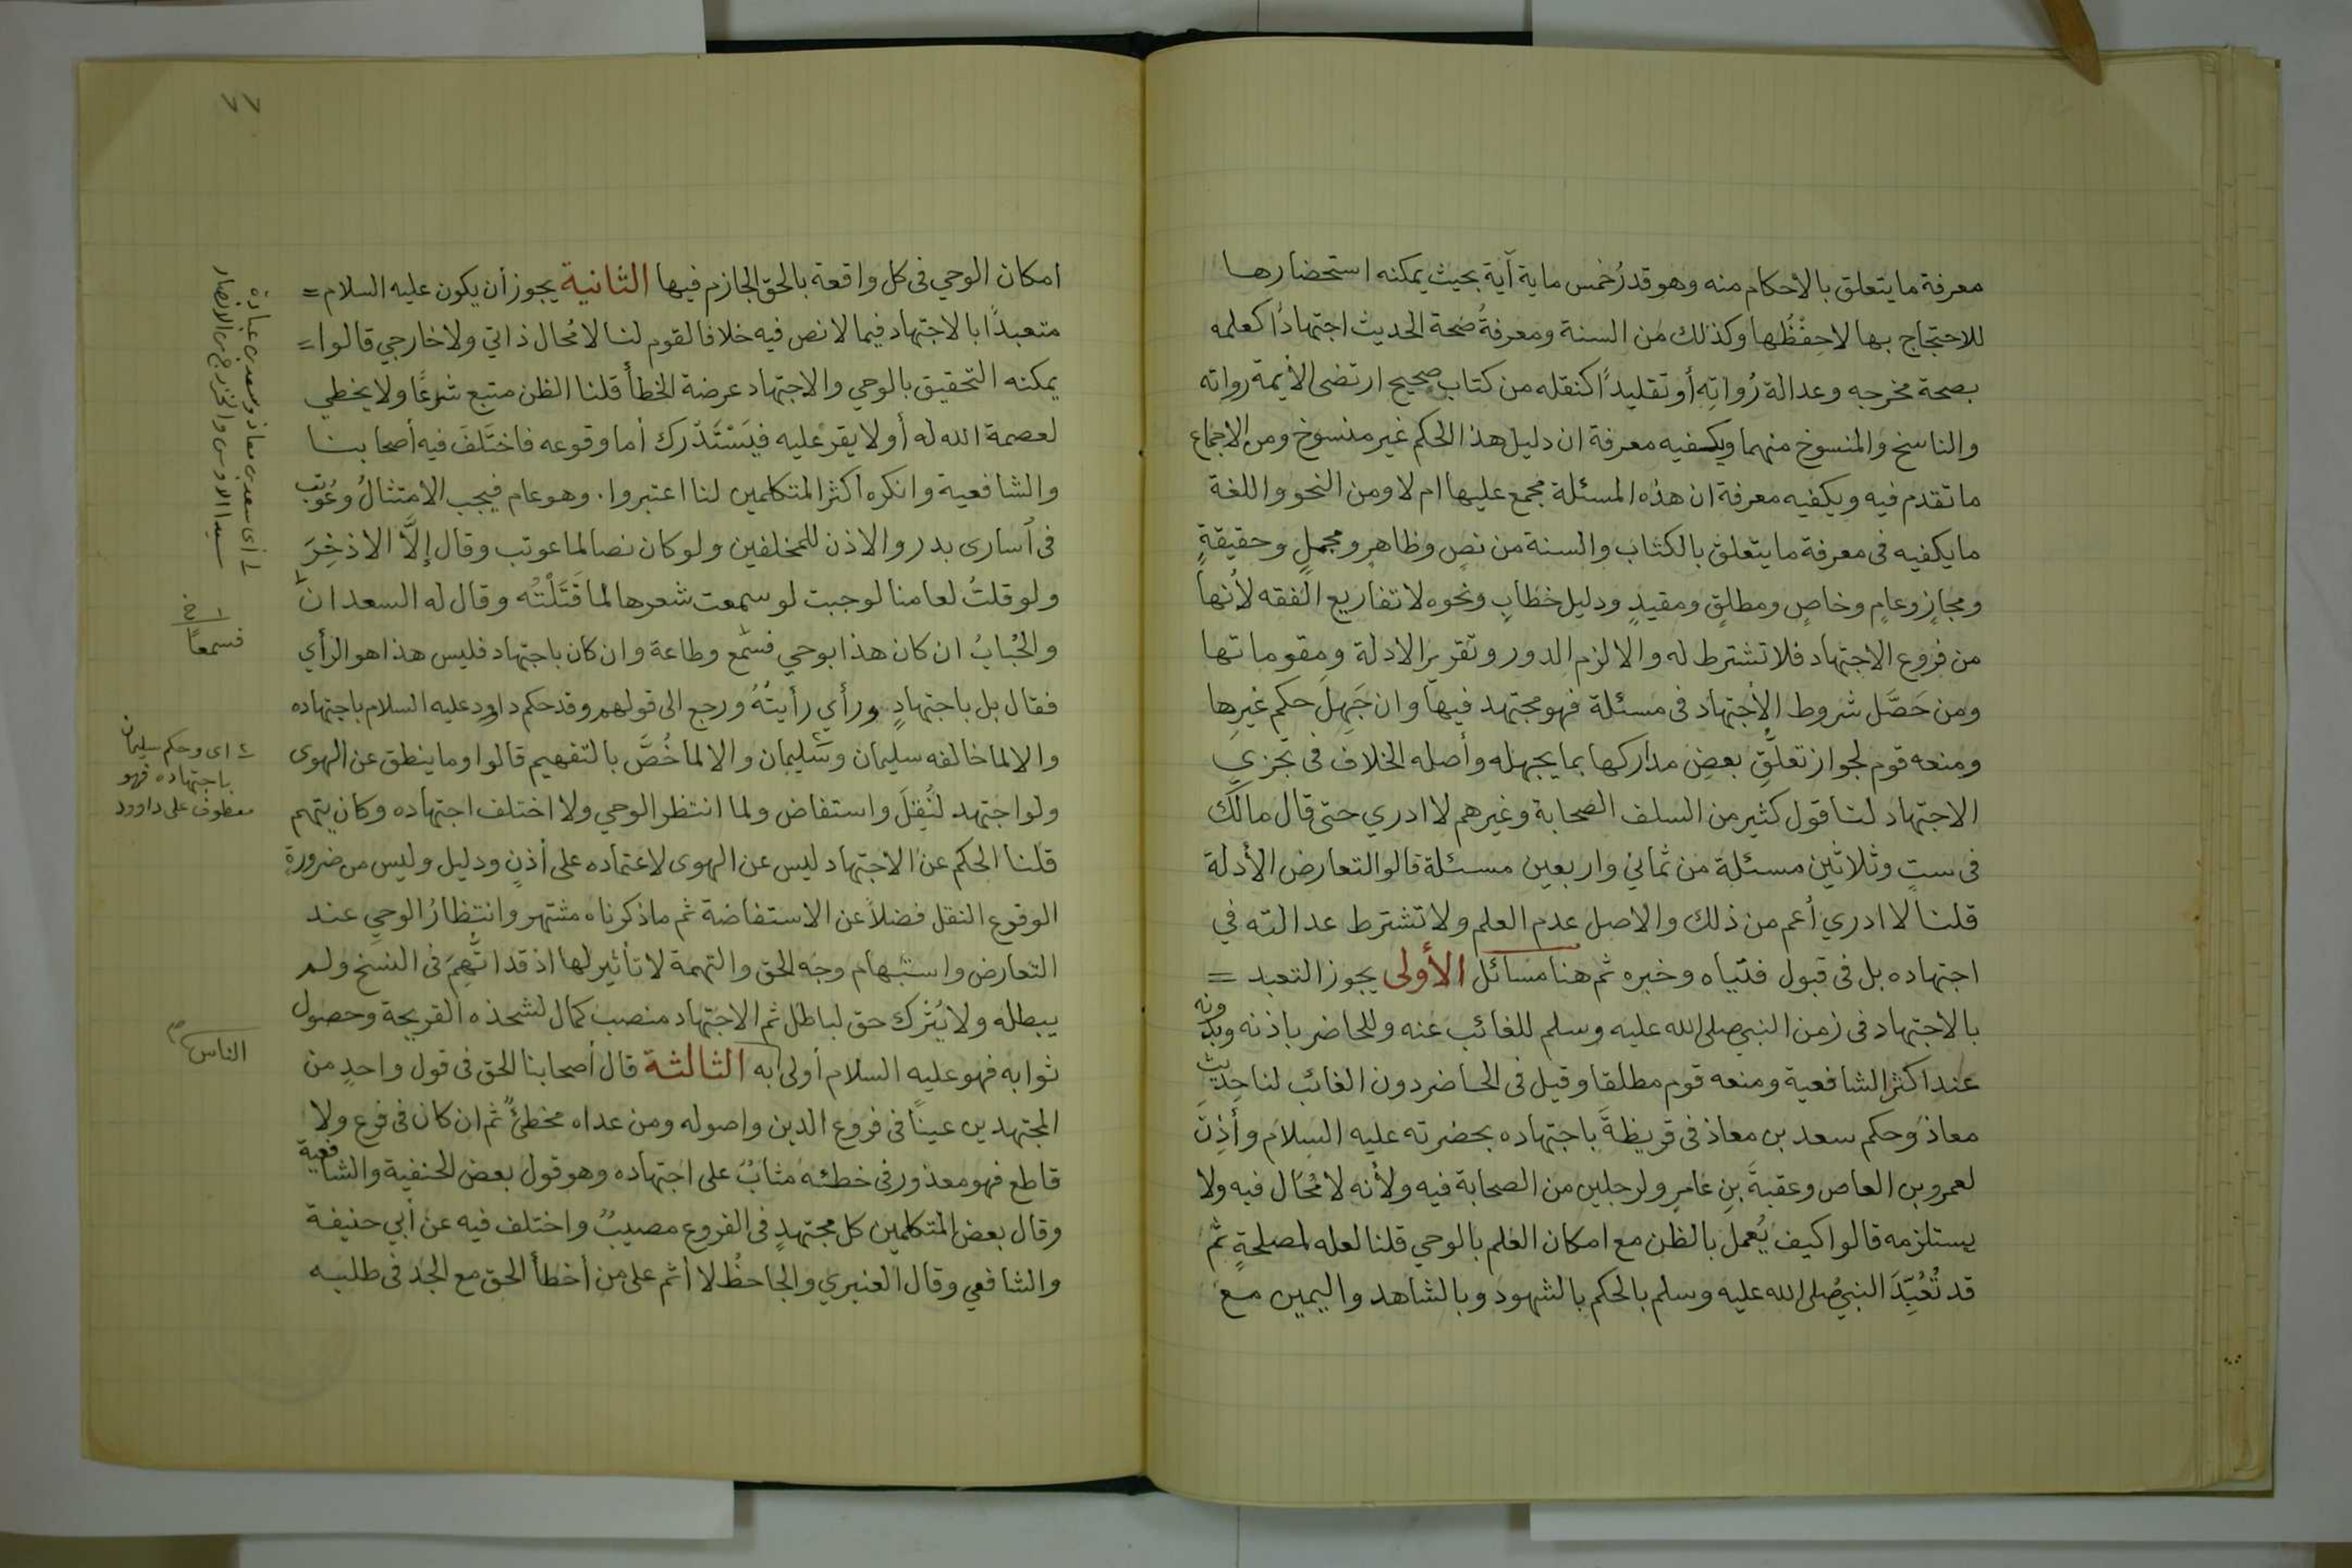 معرفة ما يتعلق بالأحكام منه وهو قدرُ خمس ماية آية بحيث يمكنه استحضارها
للاحتجاج بها لا حِفْظُها وكذلك من السنة ومعرفةُ صحة الحديث اجتهاداً كعلمه
بصحة مخرجه وعدالة رُواتِه أو تقليداً كنقله من كتاب صحيح ارتضى الأئمة رواته
والناسخ والمنسوخ منهما ويكفيه معرفة ان دليل هذا الحكم غير منسوخ ومن الاجماع
ما تقدم فيه ويكفيه معرفة ان هذه المسئلة مجمع عليها ام لا ومن النحو واللغة
ما يكفيه فى معرفة ما يتعلق بالكتاب والسنة من نصٍ وظاهرٍ ومجملٍ وحقيقةٍ
ومجازٍ وعامٍ وخاصٍ ومطلقٍ ومقيدٍ ودليل خطابٍ ونحوه لا تفاريع الفقه لأنها
من فروع الاجتهاد فلا تشترط له والا لزم الدور وتقرير الادلة ومقوماتها
ومن حَصَّل شروط الاجتهاد فى مسئلة فهو مجتهد فيها وان جَهِلَ حكم غيرِها
ومنعه قوم لجواز تعلُّقِ بعضِ مداركها بما يجهله وأصله الخلاف فى تجزي
الاجتهاد لنا قول كثير من السلف الصحابة وغيرهم لا ادري حتى قال مالك
فى ستٍ وثلاثين مسئلة من ثماني واربعين مسئلة قالوا لتعارض الأدلة
قلنا لا ادري أعم من ذلك والاصل عدم العلم ولا تشترط عدالته في
اجتهاده بل فى قبول فتياه وخبره ثم هنا مسائل الأولى يجوز التعبد =
بالاجتهاد فى زمن النبي صلى الله عليه وسلم للغائب عنه وللحاضر باذنه وبدونه
عند اكثر الشافعية ومنعه قوم مطلقا وقيل فى الحاضر دون الغائب لنا حديث
معاذ وحكم سعد بن معاذ فى قريظةَ باجتهاده بحضرته عليه السلام وأذِنَ
لعمرو بن العاص وعقبةَ بنِ عامرٍ ولرجلين من الصحابة فيه ولأنه لا مُحال فيه ولا
يستلزمه قالوا كيف يُعمل بالظن مع امكان العلم بالوحي قلنا لعله لمصلحةٍ ثم
قد تُعُبِّدَ النبيُ صلى الله عليه وسلم بالحكم بالشهود وبالشاهد واليمين مع
امكان الوحي فى كل واقعة بالحق الجازم فيها الثانية يجوز أن يكون عليه السلام =
متعبدًا بالاجتهاد فيما لا نص فيه خلافا لقوم لنا لا مُحال ذاتي ولا خارجي قالوا =
يمكنه التحقيق بالوحي والاجتهاد عرضة الخطأ قلنا الظن متبع شرعًا ولا يخطي
لعصمة الله له أو لا يقر عليه فيَسْتَدْرك أما وقوعه فاختَلَفَ فيه أصحابنا
والشافعية وانكره اكثر المتكلمين لنا اعتبروا . وهو عام فيجب الامتثالُ وعُوتب
فى أسارى بدر والاذن للمخلفين ولو كان نصا لما عوتب وقال إلَّا الاذخِرَ
ولو قلتُ لعامنا لوجبت لو سمعت شعرها لما قَتَلْتُه وقال له السعدان
والحُبابُ ان كان هذا بوحي فسمع وطاعة وان كان باجتهاد فليس هذا هو الرأي
فقال بل باجتهادٍ ورأي رأيتُهُ ورجع الى قولهم وقد حكم داود عليه السلام باجتهاده
والا لما خالفه سليمان وسليمان والا لما خُصَّ بالتفهيم قالوا وما ينطق عن الهوى
ولو اجتهد لنُقِلَ واستفاض ولما انتظر الوحي ولا اختلف اجتهاده وكان يتهم
قلنا الحكم عن الاجتهاد ليس عن الهوى لاعتماده على أذنٍ ودليل وليس من ضرورة
الوقوع النقل فضلاً عن الاستفاضة ثم ما ذكرناه مشتهر وانتظارُ الوحي عند
التعارض واستبهام وجه الحق والتهمة لا تأثير لها اذ قد اتُّهِمَ فى النسخ ولم
يبطله ولا يُترك حق لباطل ثم الاجتهاد منصب كمال لشحذه القريحة وحصول
ثوابه فهو عليه السلام أولى به الثالثة قال أصحابنا الحق فى قول واحدٍ من
المجتهدين عينًا فى فروع الدين واصوله ومن عداه مخطئٌ ثم ان كان فى فرع ولا
قاطع فهو معذور فى خطئه مثابٌ على اجتهاده وهو قول بعض الحنفية والشافعية
وقال بعض المتكلمين كل مجتهدٍ فى الفروع مصيبٌ واختلف فيه عن أبي حنيفة
والشافعي وقال العنبري والجاحظُ لا أثم على من أخطأ الحق مع الجد فى طلبه
٧٧
١ أى سعد بن معاذ وسعد بن عبادة
سيدا الاوس والخزرج من الانصار
١ خ
فسمعًا
٢ اى وحكم سليمان
باجتهاده فهو
معطوف على داوود
الناس